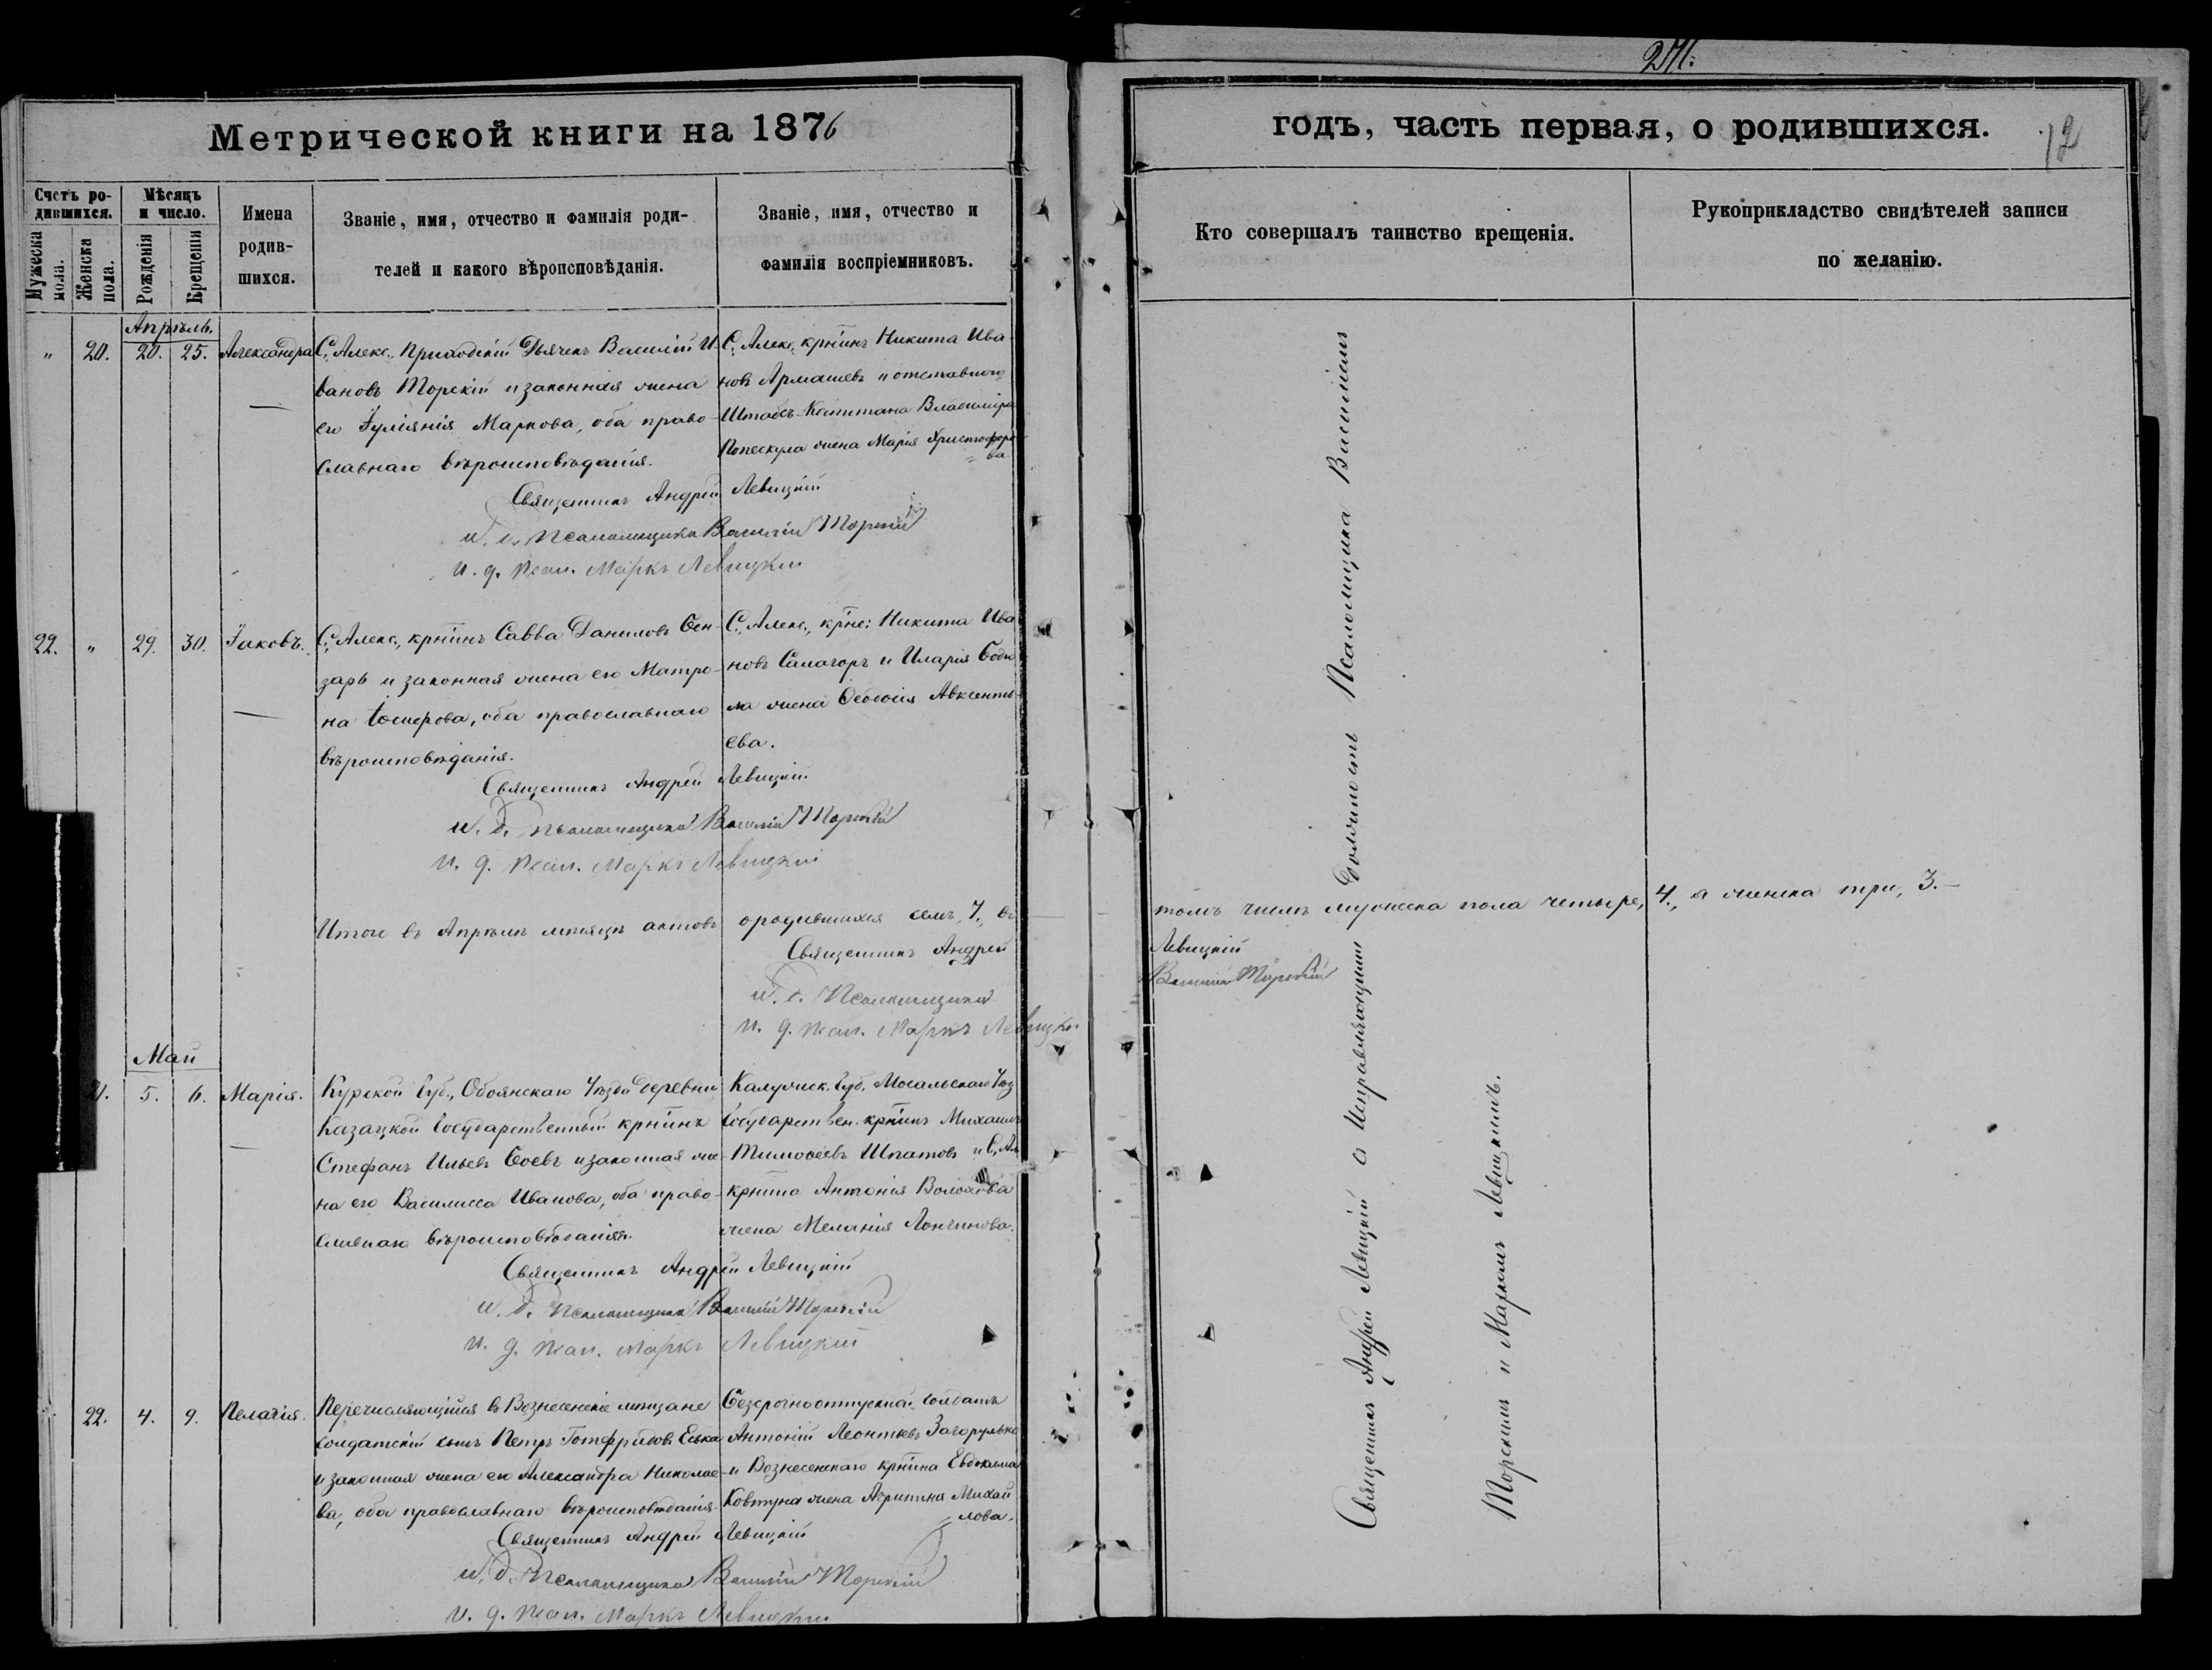 271.
Метрической книги на 1876
годъ, часть первая, о родившихся.
12
Счетъ родившихся.
Мужеска пола.
Женска пола.
Мѣсяцъ и число.
Рожденія
Крещенія
Имена родившихся.
Званіе, имя, отчество и фамилія роди-
телей и какого вѣроисповѣданія.
Званіе, имя, отчество и
фамилія воспріемниковъ.
Кто совершалъ таинство крещенія.
Рукоприкладство свидѣтелей записи
по желанію.
Апрѣль.
" 20. 20. 25. Александра
С. Алекс., Приходскій Дьячекъ Василій И-
вановъ Торскій и законная жена
его Іуліянія Маркова, оба право-
славнаго вѣроисповѣданія.
С. Алекс. крнинъ Никита Ива-
новъ Армашевъ и отставного
Штабсъ-Капитана Владиміра
Попескула жена Марія Христофоро-
ва
Священникъ Андрей Левицкій
и. д. Псаломщика Василій Торскій
и. д. псал. Маркъ Левицкій
22. " 29. 30. Іаковъ.
С. Алекс., крнинъ Савва Даниловъ Бен-
заръ и законная жена его Матро-
на, оба православнаго
вѣроисповѣданія.
С. Алекс., крне: Никита Ива-
новъ и Иларія
жена Ѳеодосія Авксенть-
ева.
Священникъ Андрей Левицкій
и. д. псаломщика Василій Торскій
и. д. псал. Маркъ Левицкій
Итого въ Апрѣлѣ мѣсяцѣ актовъ о родившихся семь, 7., въ томъ числѣ мужеска пола четыре, 4., а женска три, 3.
Священникъ Андрей Левицкій
и. д. Псаломщика Василій Торскій
и. д. псал. Маркъ Левицкій
Май
21. 5. 6. Марія.
Курской Губ., Обоянскаго Уѣзда Деревни
Казацкой Государственный крнинъ
Стефанъ Ильевъ Боевъ и законная же-
на его Василисса Иванова, оба право-
славнаго вѣроисповѣданія.
Калужск. Губ. Мосальскаго Уѣз
Государствен. крнинъ Михаилъ
Тимоѳеевъ Шпатовъ и С. Ал
крнина Антонія
жена Меланія Лонгинова.
Священникъ Андрей Левицкій
и. д. Псаломщика Василій Торскій
и. д. псал. Маркъ Левицкій
22. 4. 9. Пелагія.
Перечисляющійся въ Вознесенскіе мѣщане
солдатскій сынъ Петръ Готфридовъ Еська
и законная жена его Александра Николае-
ва, оба православнаго вѣроисповѣданія.
Безсрочноотпускной солдатъ
Антоній Леонтьевъ Загорулько
и Вознесенскаго крнина Евдокима
Ковтуна жена Агрипина Михай
лова.
Священникъ Андрей Левицкій
и. д. Псаломщика Василій Торскій
и. д. псал. Маркъ Левицкій
Священникъ Андрей Левицкій съ Исправляющими Должность Псаломщика Василіемъ
Торскимъ и Маркомъ Левицкимъ.